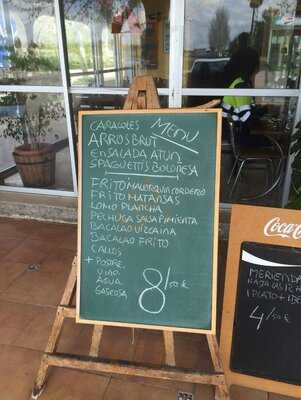 MENU
CARACOLES
ARROS BRUT
ENSALADA ATUN
SPAGUETTIS BOLOÑESA
FRITO MALLORQUIN CORDERO
FRITO MATANSAS
LOMO PLANCHA
PECHUGA SALSA PIMIENTA
BACALAO VIZCAINA
BACALAO FRITO
CALLOS
+ POSTRE
VINO
AGUA
GASEOSA
8/50 €
Coca
MERIENDA
1 PLATO + 1
4/50 €